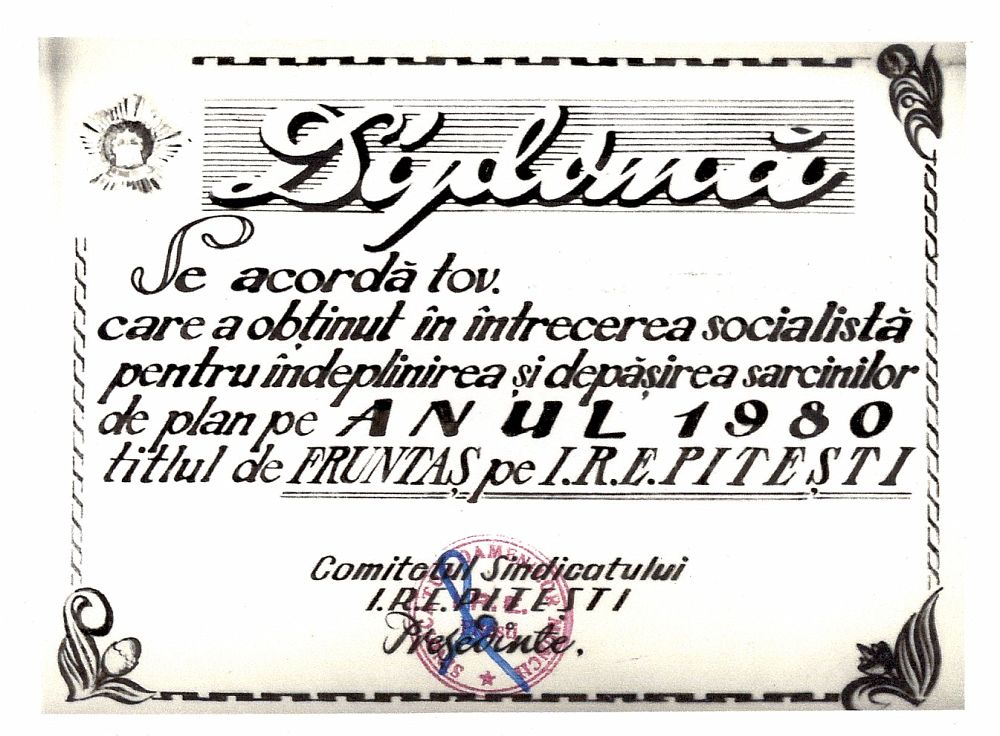 Diplomă
Se acordă tov.
care a obținut în întrecerea socialistă
pentru îndeplinirea și depășirea sarcinilor
de plan pe ANUL 1980
titlul de FRUNTAȘ pe I.R.E. PITEȘTI
Comitetul Sindicatului
I.R.E. PITEȘTI
Președinte.